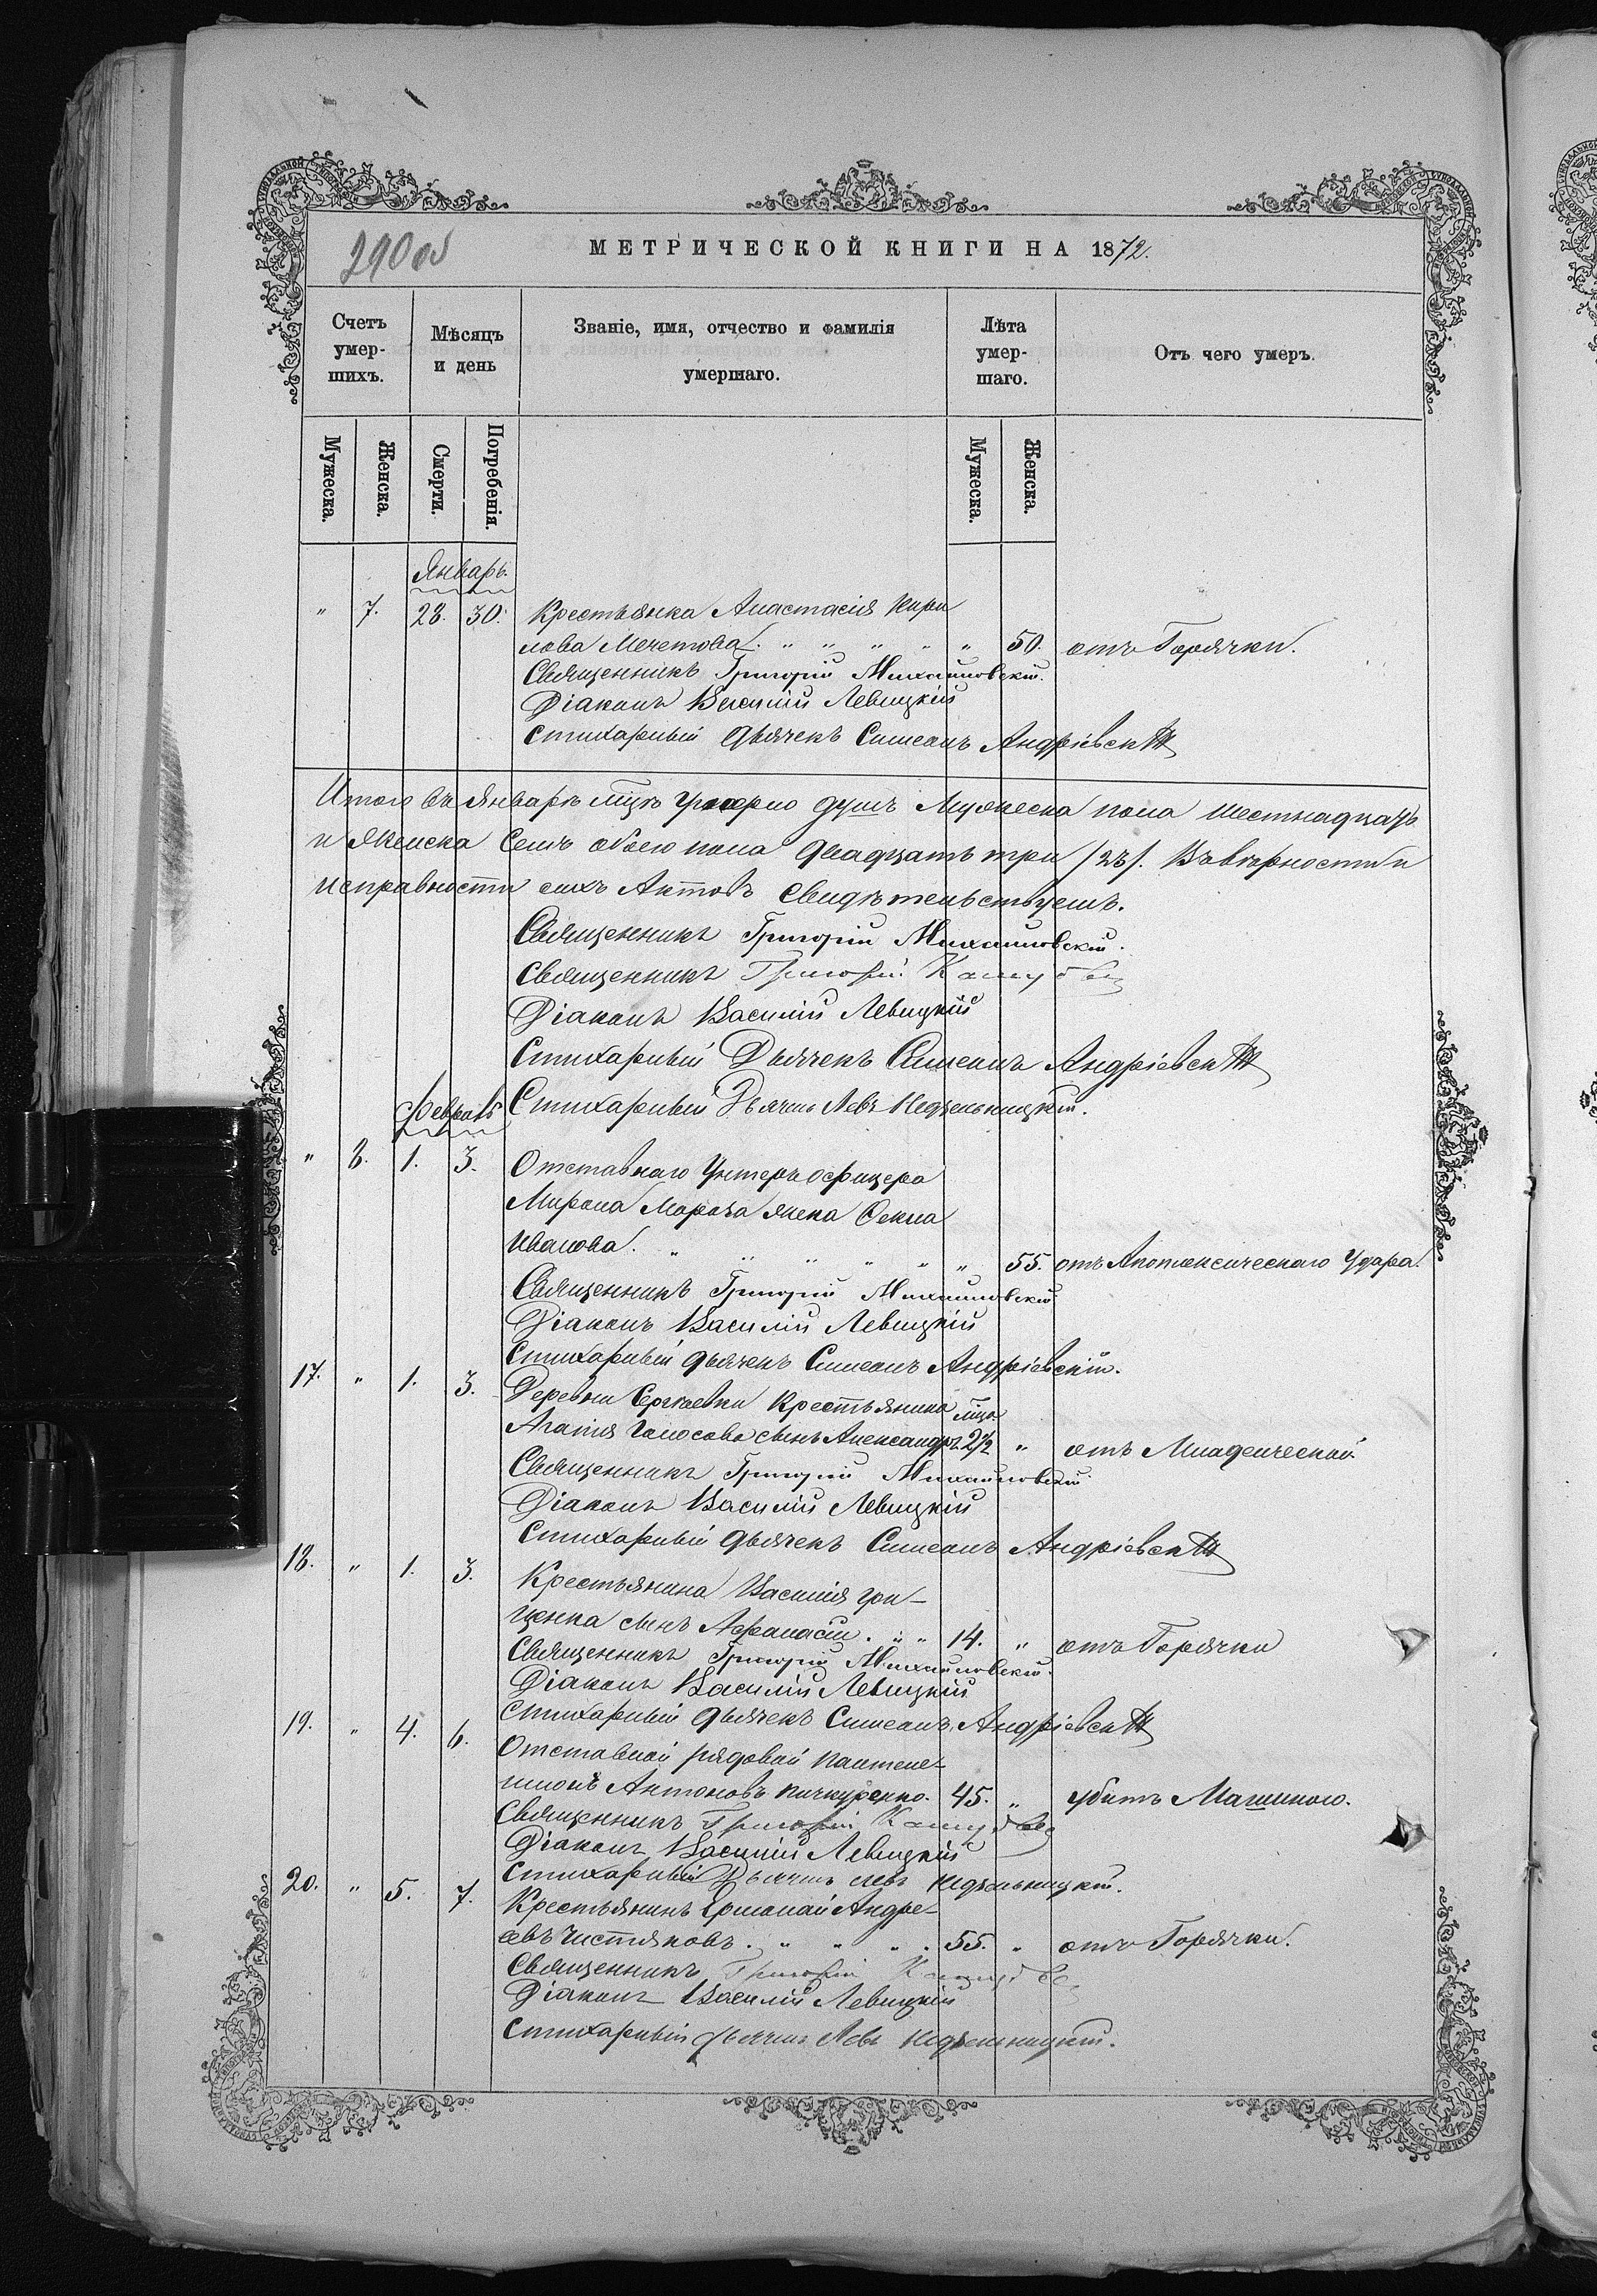 290 об
МЕТРИЧЕСКОЙ КНИГИ НА 1872.
Счетъ умер-шихъ.
Мѣсяцъ и день
Званіе, имя, отчество и фамилія умершаго.
Лѣта умер-шаго.
Отъ чего умеръ.
Мужеска.
Женска.
Смерти.
Погребенія.
Мужеска.
Женска.
Январь.
" 7. 28. 30. Крестьянка Анастасія Кири
лова Мечетова. " " " " " 50. отъ Горячки.
Священникъ Григорій Михайловскій.
Діаконъ Василій Левицкій
Стихарный дьячекъ Симеонъ Андріевскій
Итого въ Январѣ мцѣ умерло душъ Мужеска пола шестнадцать
и Женска Семъ обоего пола двадцать три /23/. Въ вѣрности и
исправности сихъ Актовъ свидѣтельствуемъ.
Священникъ Григорій Михайловскій.
Священникъ Григорій
Діаконъ Василій Левицкій
Стихарный Дьячекъ Симеонъ Андріевскій
Февраль
Стихарный Дьячекъ Левъ Недѣльницкій.
" 8. 1. 3. Отставнаго Унтеръ офицера
Мирона Мороза жена Фекла
Иванова. " " " " " " 55. отъ Апоплексическаго Удара.
Священникъ Григорій Михайловскій
Діаконъ Василій Левицкій
Стихарный дьячекъ Симеонъ Андріевскій.
17. " 1. 3. Деревни Сергѣевки Крестьянина мца
Агапія Голосова сынъ Александръ 2½ " отъ Младенческой
Священникъ Григорій Михайловскій
Діаконъ Василій Левицкій
Стихарный дьячекъ Симеонъ Андріевскій
18. " 1. 3. Крестьянина Василія Гри-
ценка сынъ Афанасій. " " 14. " отъ Горячки
Священникъ Григорій Михайловскій.
Діаконъ Василій Левицкій
Стихарный дьячекъ Симеонъ Андріевскій
19. " 4. 6. Отставной рядовой Пантеле-
имонъ Антоновъ Кичкуренко. 45. " убитъ Машиною.
Священникъ Григорій
Діаконъ Василій Левицкій
Стихарный Дьячекъ Левъ Недѣльницкій.
20. " 5. 7. Крестьянинъ Ермолай Андре-
евъ Чистяковъ. " " " . 55. " отъ Горячки.
Священникъ Григорій
Діаконъ Василій Левицкій
Стихарный дьячекъ Левъ Недѣльницкій.